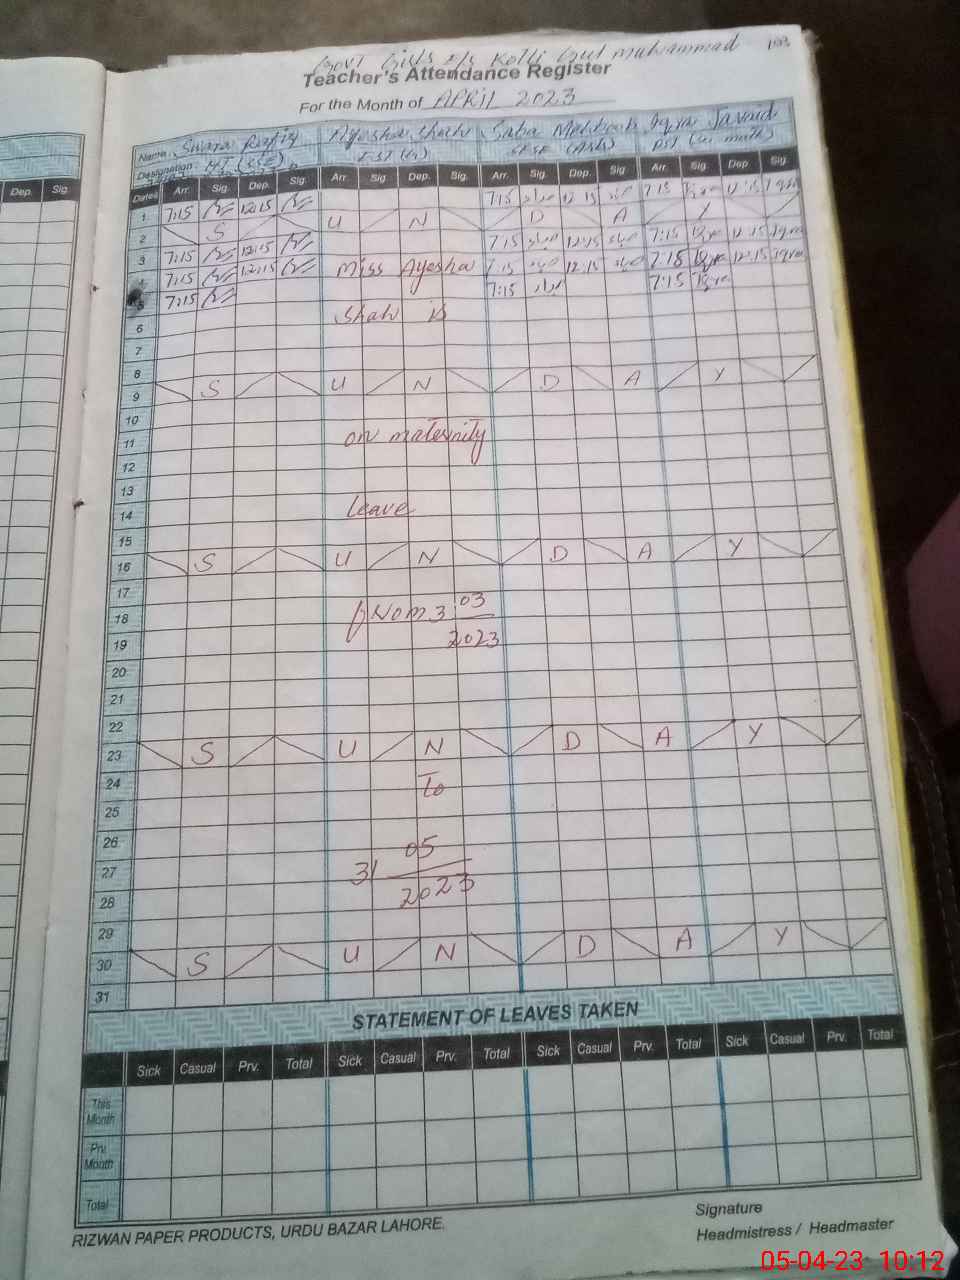 Govt Girls E/S Kotli Gul Muhammad
Teacher's Attendance Register
For the Month of APRIL 2023
Name Swara Rafiq Ayesha Shah Saba Mehboob Iqra Javaid
Designation HT (SSE) EST PST
Dates Arr. Sig. Dep. Sig. Arr. Sig. Dep. Sig. Arr. Sig. Dep. Sig. Arr. Sig. Dep. Sig.
Dep. Sig.
1 7:15 12:15 7:15 12:15 7:15 Iqra 12:15 Iqra
2 S U N D A Y
3 7:15 12:15 7:15 12:15 7:15 Iqra 12:15 Iqra
4 7:15 12:15 Miss Ayesha 7:15 12:15 7:15 Iqra 12:15 Iqra
5 7:15 7:15 7:15 Iqra
6 Shah is
7
8
9 S U N D A Y
10
11 on maternity
12
13
14 leave
15
16 S U N D A Y
17
18 from 3 03
19 2023
20
21
22
23 S U N D A Y
24 To
25
26 05
27 31
28 2023
29
30 S U N D A Y
31
STATEMENT OF LEAVES TAKEN
Sick Casual Prv. Total Sick Casual Prv. Total Sick Casual Prv. Total Sick Casual Prv. Total
This Month
Prv. Month
Total
RIZWAN PAPER PRODUCTS, URDU BAZAR LAHORE.
Signature
Headmistress / Headmaster
05-04-23 10:12